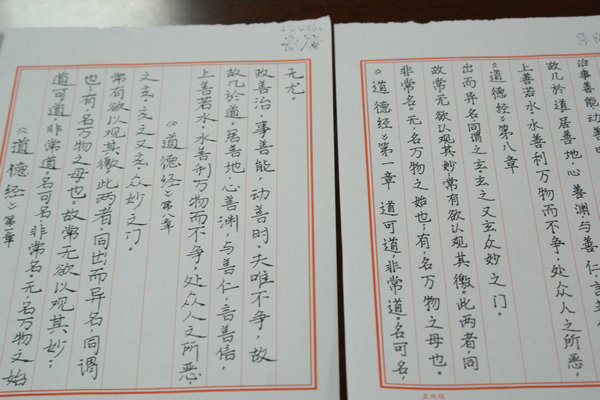 《道德经》第一章
道可道，非常道，名可名，非常名。无，名万物之始
也；有，名万物之母也。故常无欲以观其妙；
常有欲以观其徼。此两者，同出而异名，同谓
之玄。玄之又玄，众妙之门。
《道德经》第八章
上善若水。水善利万物而不争，处众人之所恶，
故几於道。居善地，心善渊，与善仁，言善信，
政善治，事善能，动善时。夫唯不争，故
无尤。
《道德经》第一章 道可道，非常道。名可名，
非常名。无，名万物之始也；有，名万物之母也。
故常无欲以观其妙常有欲以观其徼。此两者，同
出而异名，同谓之玄。玄之又玄众妙之门。
《道德经》第八章
上善若水。水善利万物而不争，处众人之所恶，
故几於道居善地心善渊与善仁言善
事善能，动善